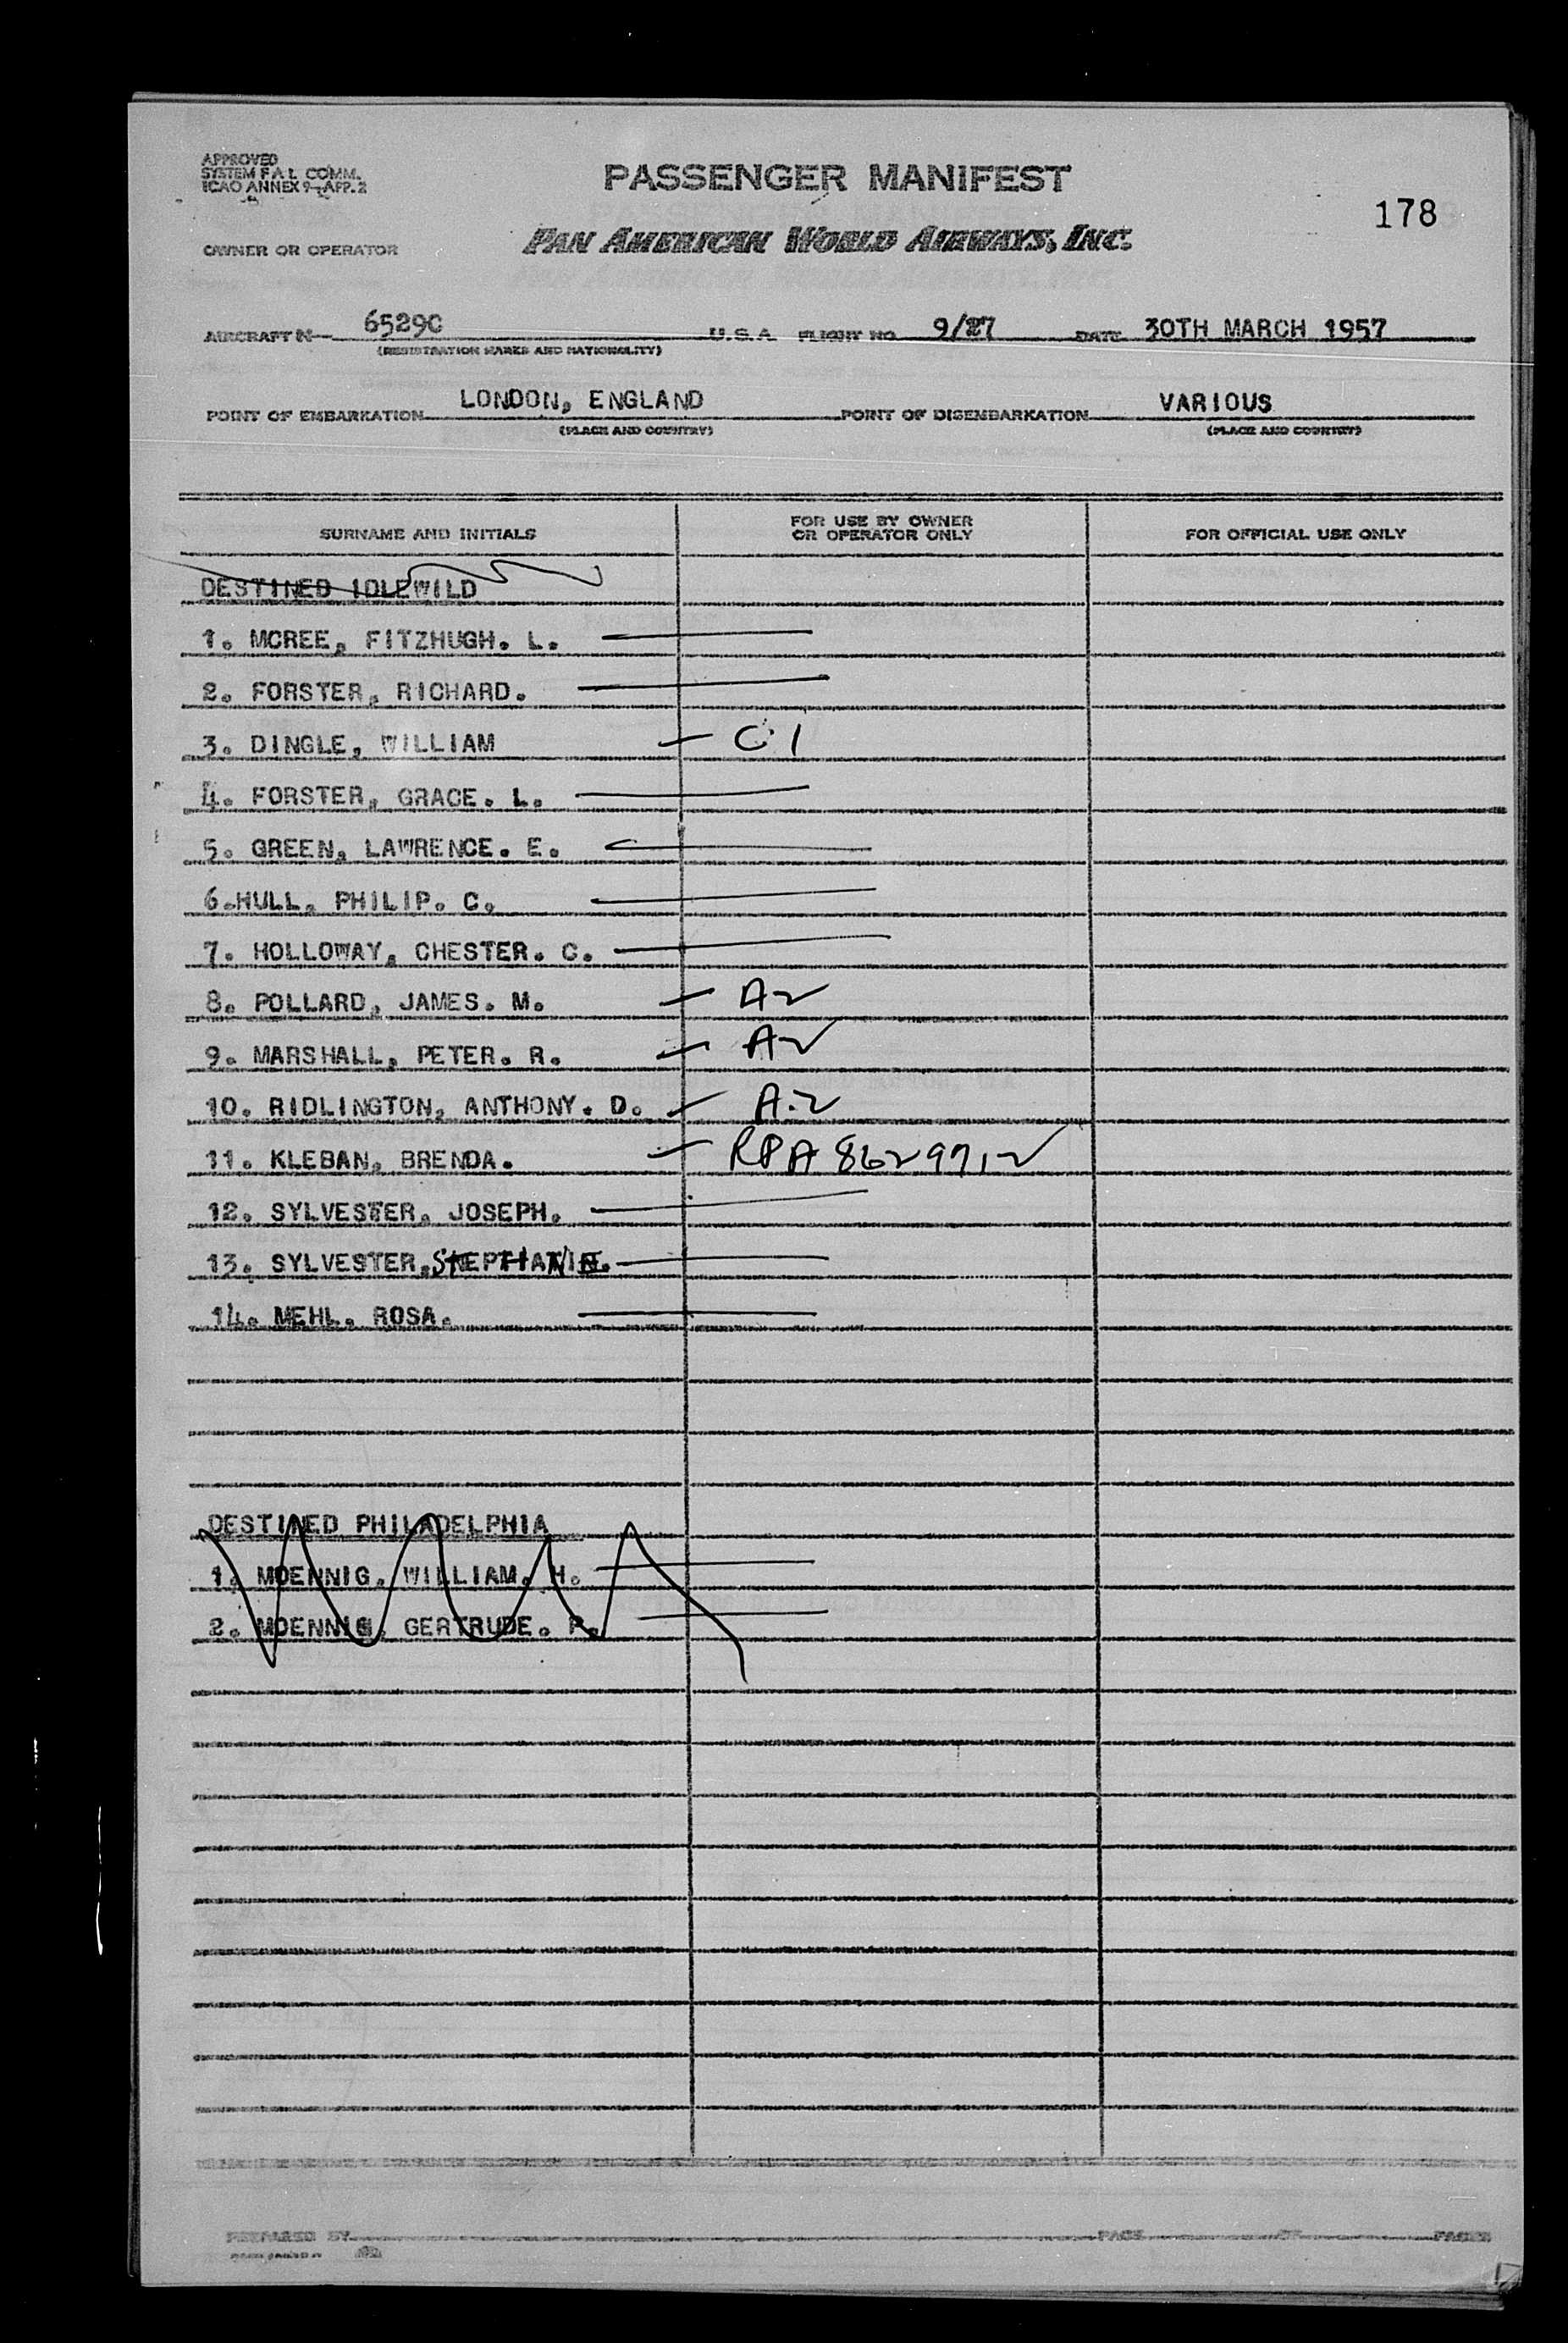 APPROVED
SYSTEM F A L COMM.
ICAO ANNEX 9-APP. 2
PASSENGER MANIFEST
178
OWNER OR OPERATOR
PAN AMERICAN WORLD AIRWAYS, INC.
AIRCRAFT N— 6529C U.S.A. FLIGHT NO. 9/27 DATE 30TH MARCH 1957
(REGISTRATION MARKS AND NATIONALITY)
POINT OF EMBARKATION LONDON, ENGLAND POINT OF DISEMBARKATION VARIOUS
(PLACE AND COUNTRY) (PLACE AND COUNTRY)
SURNAME AND INITIALS FOR USE BY OWNER OR OPERATOR ONLY FOR OFFICIAL USE ONLY
DESTINED IDLEWILD
1. MCREE, FITZHUGH. L.
2. FORSTER, RICHARD.
3. DINGLE, WILLIAM — C 1
4. FORSTER, GRACE. L.
5. GREEN, LAWRENCE. E.
6.HULL, PHILIP. C.
7. HOLLOWAY, CHESTER. C.
8. POLLARD, JAMES. M. — A2
9. MARSHALL, PETER. R. — A2
10. RIDLINGTON, ANTHONY. D. — A.2
11. KLEBAN, BRENDA. — RPA 862 97 12
12. SYLVESTER, JOSEPH.
13. SYLVESTER, STEPHANIE.
14. MEHL, ROSA.
DESTINED PHILADELPHIA
1. MOENNIG, WILLIAM. H.
2. MOENNIG, GERTRUDE. P.
PREPARED BY PAGE OF PAGES